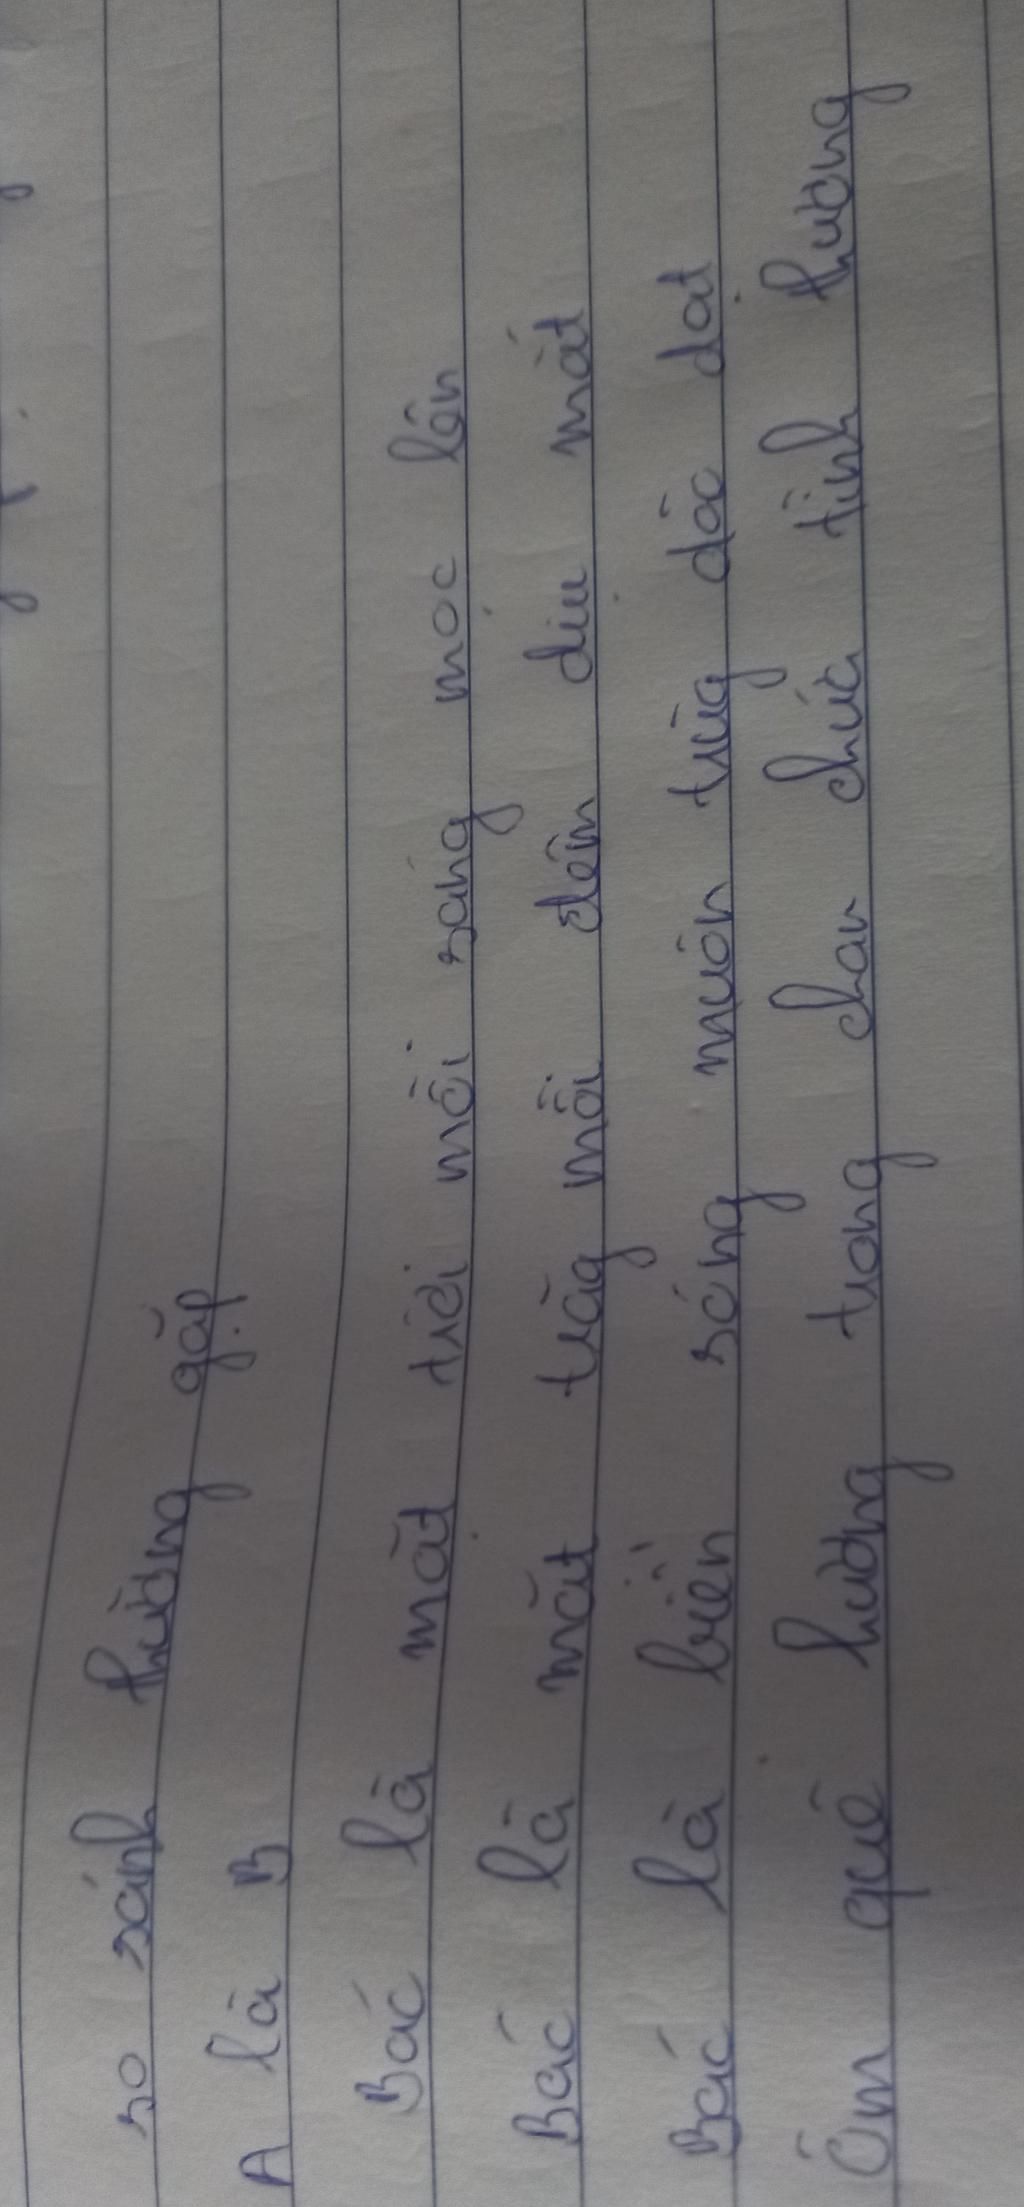 so sánh thường gặp
A là B
Bác là mặt trời mỗi sáng mọc lên
Bác là mặt trăng mỗi đêm dịu mát
Bác là biển sóng muôn trùng dào dạt
Ôm quê hương trong chan chứa tình thương